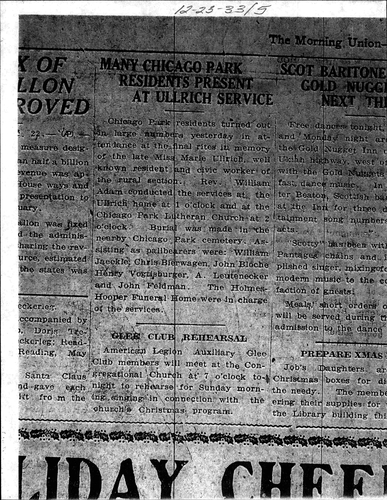 12-23-33/5
The Morning Union
K OF
LLON
ROVED
MANY CHICAGO PARK
RESIDENTS PRESENT
AT ULLRICH SERVICE
Chicago Park residents turned out
in large numbers yesterday in at-
tendance at the final rites in memory
of the late Miss Marie Ullrich, well
known resident and civic worker of
the rural section. Rev. William
Adam conducted the services at the
Ullrich home at 1 o'clock and at the
Chicago Park Lutheran Church at 2
o'clock. Burial was made in the
nearby Chicago Park cemetery. As-
sisting as pallbearers were: William
Jaeckle, Chris Bierwagen, John Bloche
Henry Voglsburger, A. Leutenecker
and John Feldman. The Holmes-
Hooper Funeral Home were in charge
of the services.
GLEE CLUB REHEARSAL
American Legion Auxiliary Glee
Club members will meet at the Con-
gregational Church at 7 o'clock to-
night to rehearse for Sunday morn-
ing singing in connection with the
church's Christmas program.
SCOT BARITONE
GOLD NUGG
NEXT TH
Free dances tonight
and Monday night ar
the Gold Nugget Inn
Ukiah highway, west o
with the Gold Nuggets
fast dance music. In
ter Beaton, Scottish bar
at the Inn for three d
tainment song number
acts.
Scotty has been with
Pantages chains and
plished singer, mixing
modern music to the co
faction of guests.
Meals, short orders
will be served during t
admission to the dance
PREPARE XMAS
Job's Daughters ar
Christmas boxes for d
the needy. The membe
ering their supplies for
the Library building thi
22.—(UP)—
measure desig-
an half a billion
evenue was ap-
ouse ways and
presentation to
uary.
allon was fixed
the adminis-
haring the rev-
urce, estimated
the states was
eckerley:
accompanied by
Doris Tre-
eckerley; Read-
Reading, May
Santa Claus
and gave each
ift from the
LIDAY CHEE